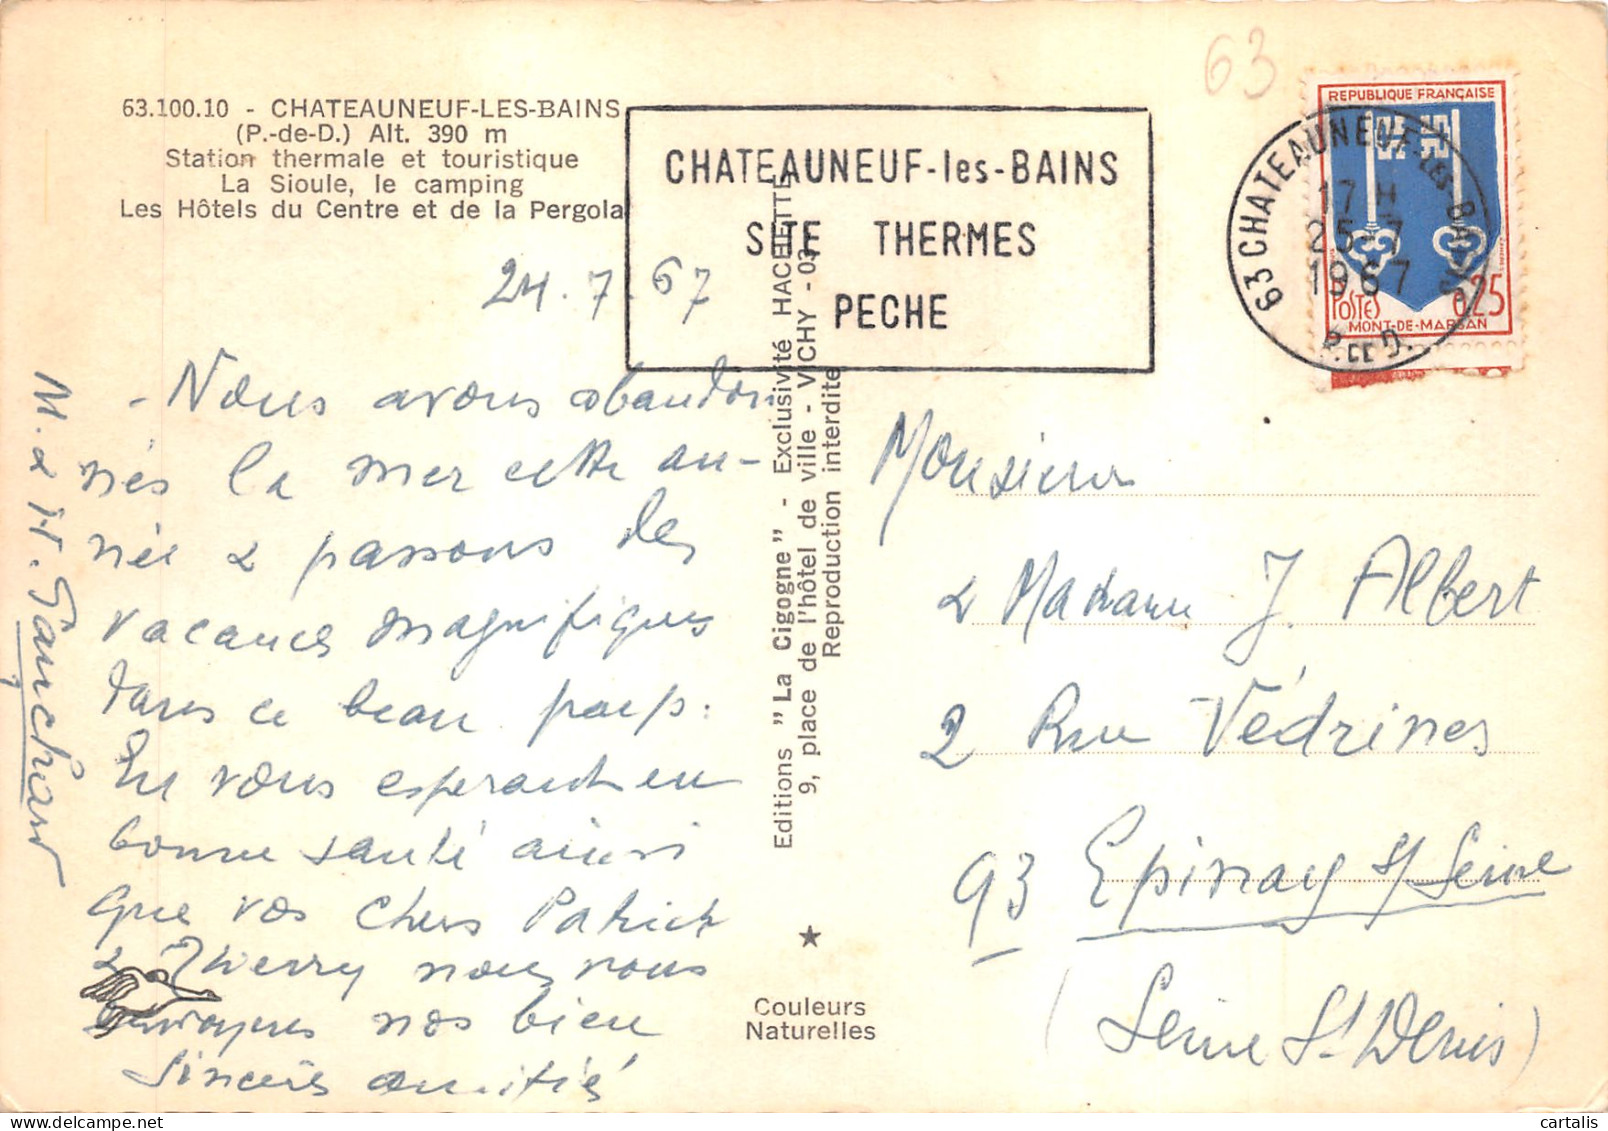 63.100.10 - CHATEAUNEUF-LES-BAINS
(P.-de-D.) Alt. 390 m
Station thermale et touristique
La Sioule, le camping
Les Hôtels du Centre et de la Pergola
63
CHATEAUNEUF-les-BAINS
SITE THERMES
PECHE
63 CHATEAUNEUF-LES-BAINS
17 H
25-7
1967
P. DE D.
REPUBLIQUE FRANÇAISE
POSTES 0,25
MONT-DE-MARSAN
24.7.67
- Nous avons abandon
nés la mer cette an-
née & passons des
vacances magnifiques
dans ce beau pays.
En vous esperant en
bonne santé ainsi
que vos chers Patrick
& Thierry nous vous
envoyons nos bien
sincères amitiés
M. & H.
Editions "La Cigogne" - Exclusivité HACHETTE
9, place de l'hôtel de ville - VICHY - 03
Reproduction interdite
Couleurs
Naturelles
Monsieur
& Madame J. Albert
2 Rue Védrines
93 Epinay s/ Seine
(Seine St Denis)
cartalis